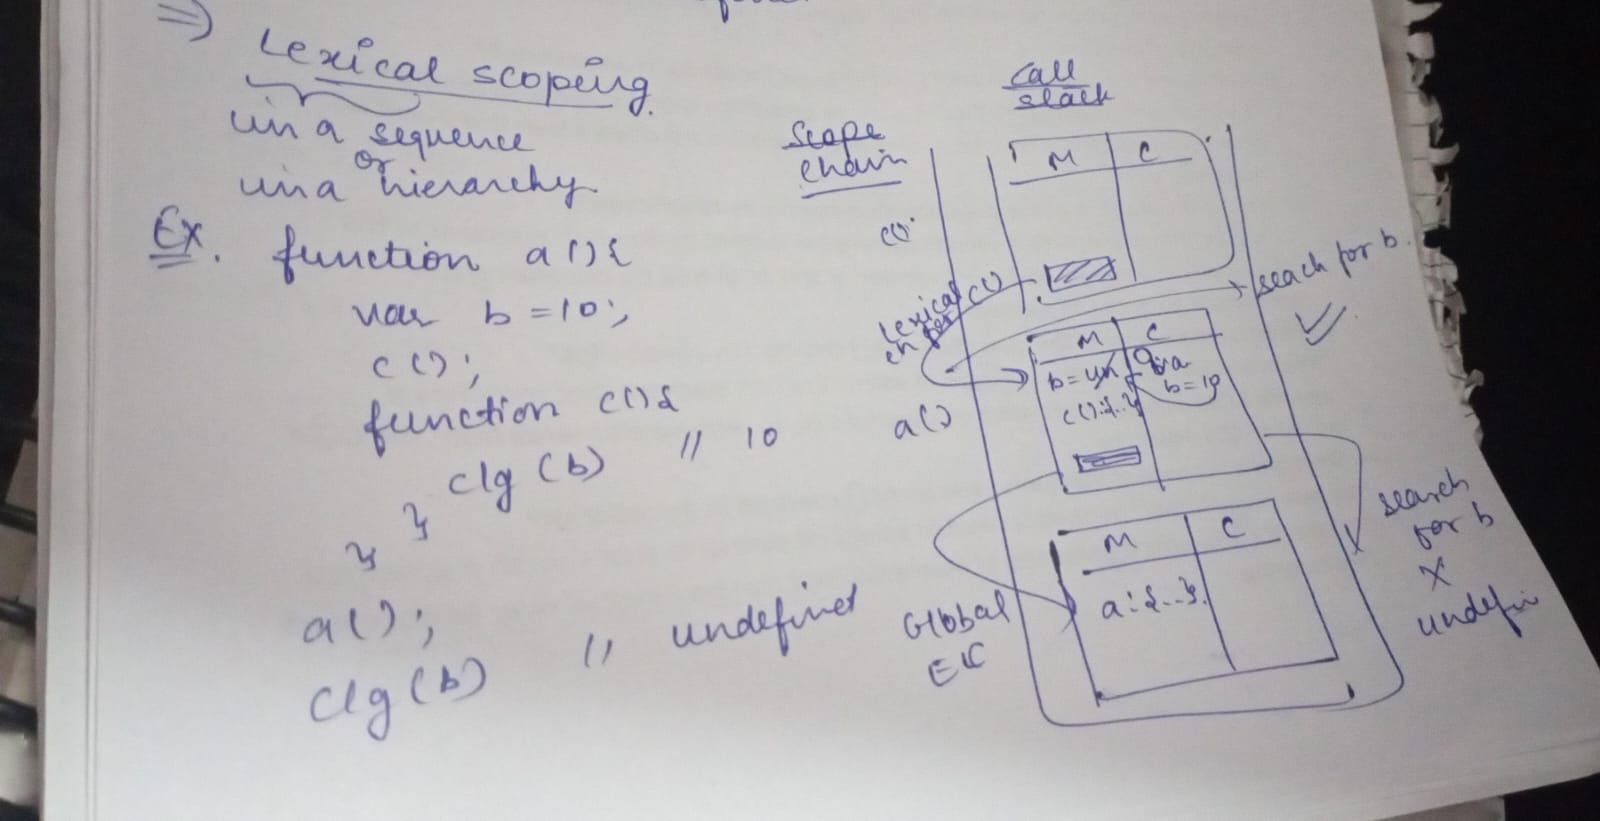 => Lexical scoping.
in a sequence
or
in a hierarchy
Ex. function a(){
var b = 10;
c();
function c(){
clg (b) // 10
}
}
a();
clg (b) // undefined
Call
stack
Scope
chain
M C
c()
Lexical
c()
search for b.
M C
b = un
b = 10
c(): {..}
a()
search
for b
X
M C
a: {...}
Global
EC